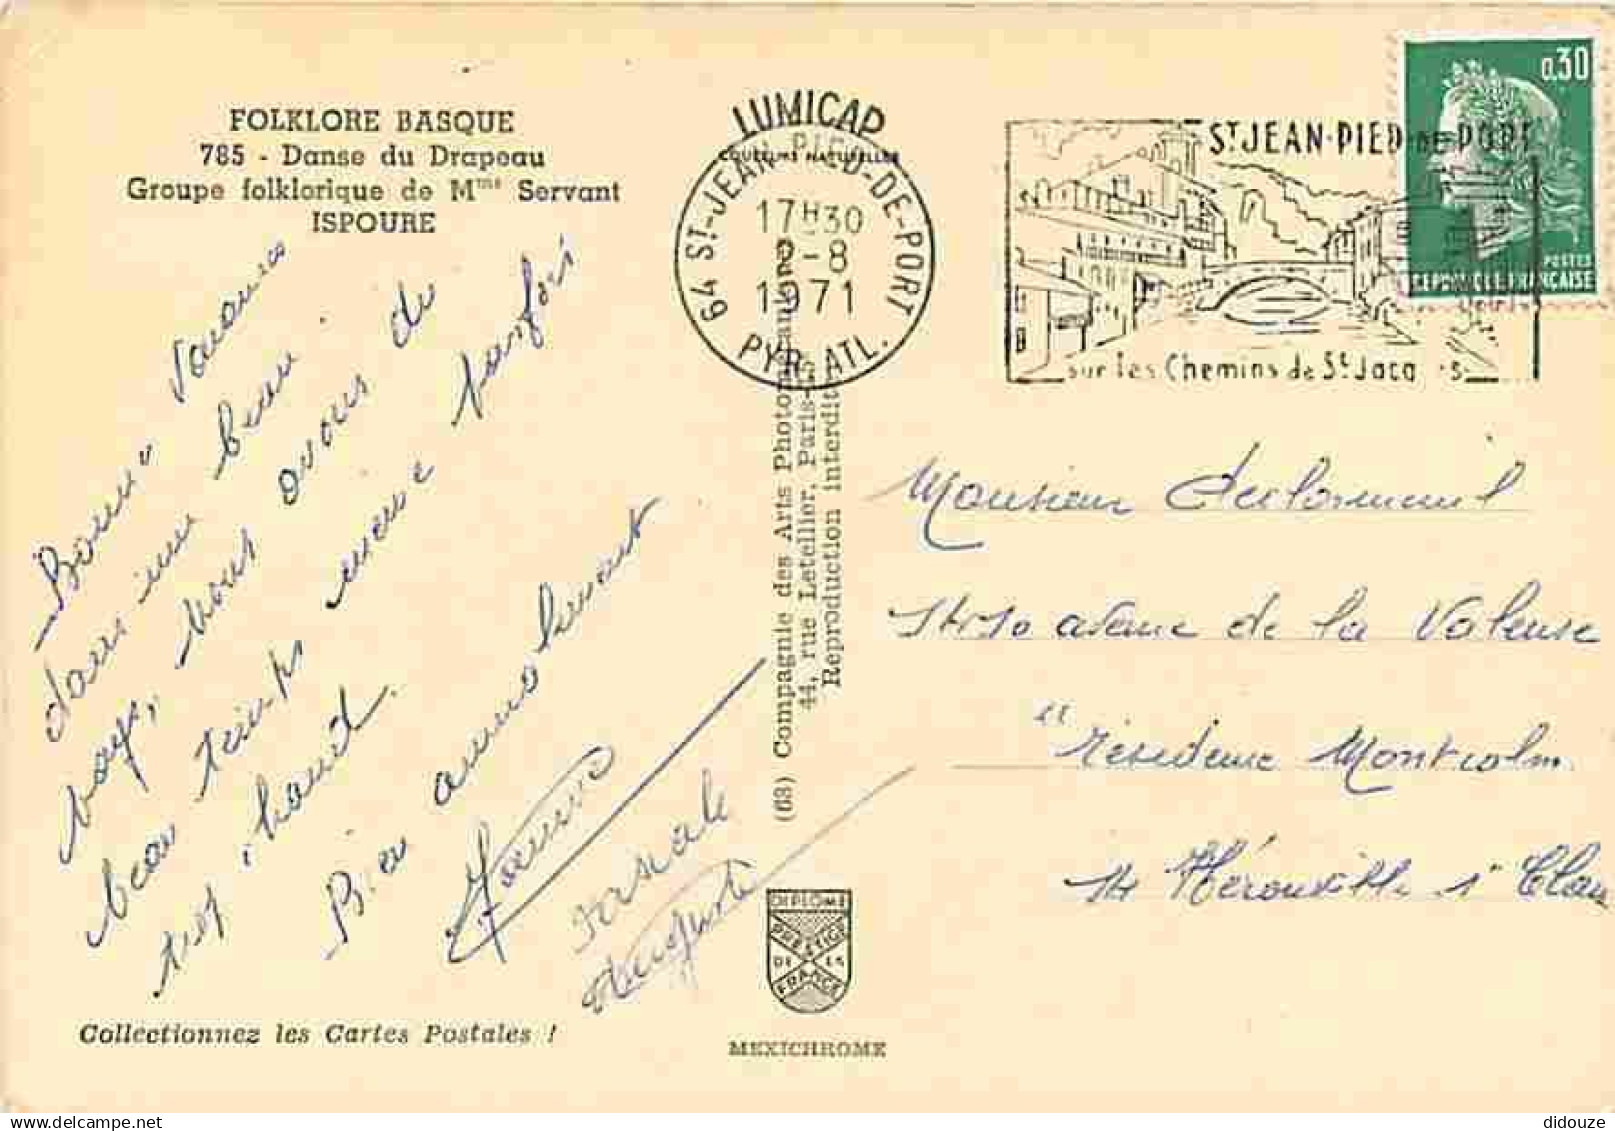 FOLKLORE BASQUE
785 - Danse du Drapeau
Groupe folklorique de Mme Servant
ISPOURE
Bonnes vacances
dans un beau
pays, nous avons du
beau temps même parfois
très chaud.
Bien amicalement
Pascale
Collectionnez les Cartes Postales !
LUMICAP
COULEURS NATURELLES
64 ST-JEAN-PIED-DE-PORT
17H30
-8
1971
PYR. ATL.
(63) Compagnie des Arts Photomécaniques
44, rue Letellier, Paris-
Reproduction interdite
DIPLOME
PRESTIGE
DE LA
FRANCE
MEXICHROME
ST JEAN-PIED DE PORT
sur les Chemins de St Jacques
0,30
POSTES
REPUBLIQUE FRANÇAISE
Monsieur
avenue de la Valeuse
"résidence Montcalm
14 Hérouville St Clair
didouze